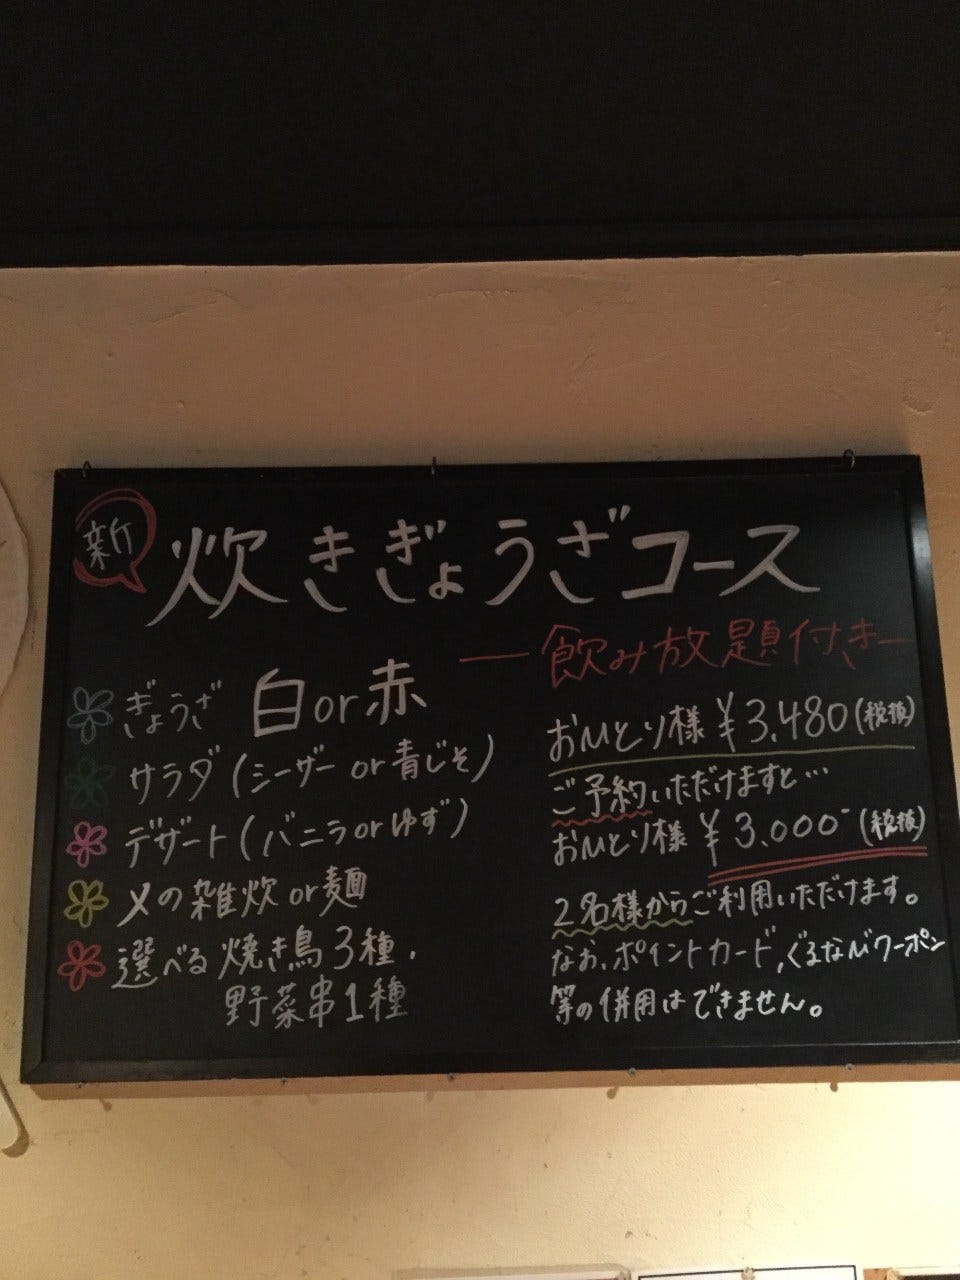 新
炊きぎょうざコース
ー飲み放題付きー
ぎょうざ 白or赤
サラダ(シーザー or 青じそ)
デザート(バニラorゆず)
〆の雑炊or麺
選べる焼き鳥3種.
野菜串1種
おひとり様¥3,480(税抜)
ご予約いただけますと…
おひとり様¥3,000-(税抜)
2名様からご利用いただけます。
なお、ポイントカード,ぐるなびクーポン
等の併用はできません。